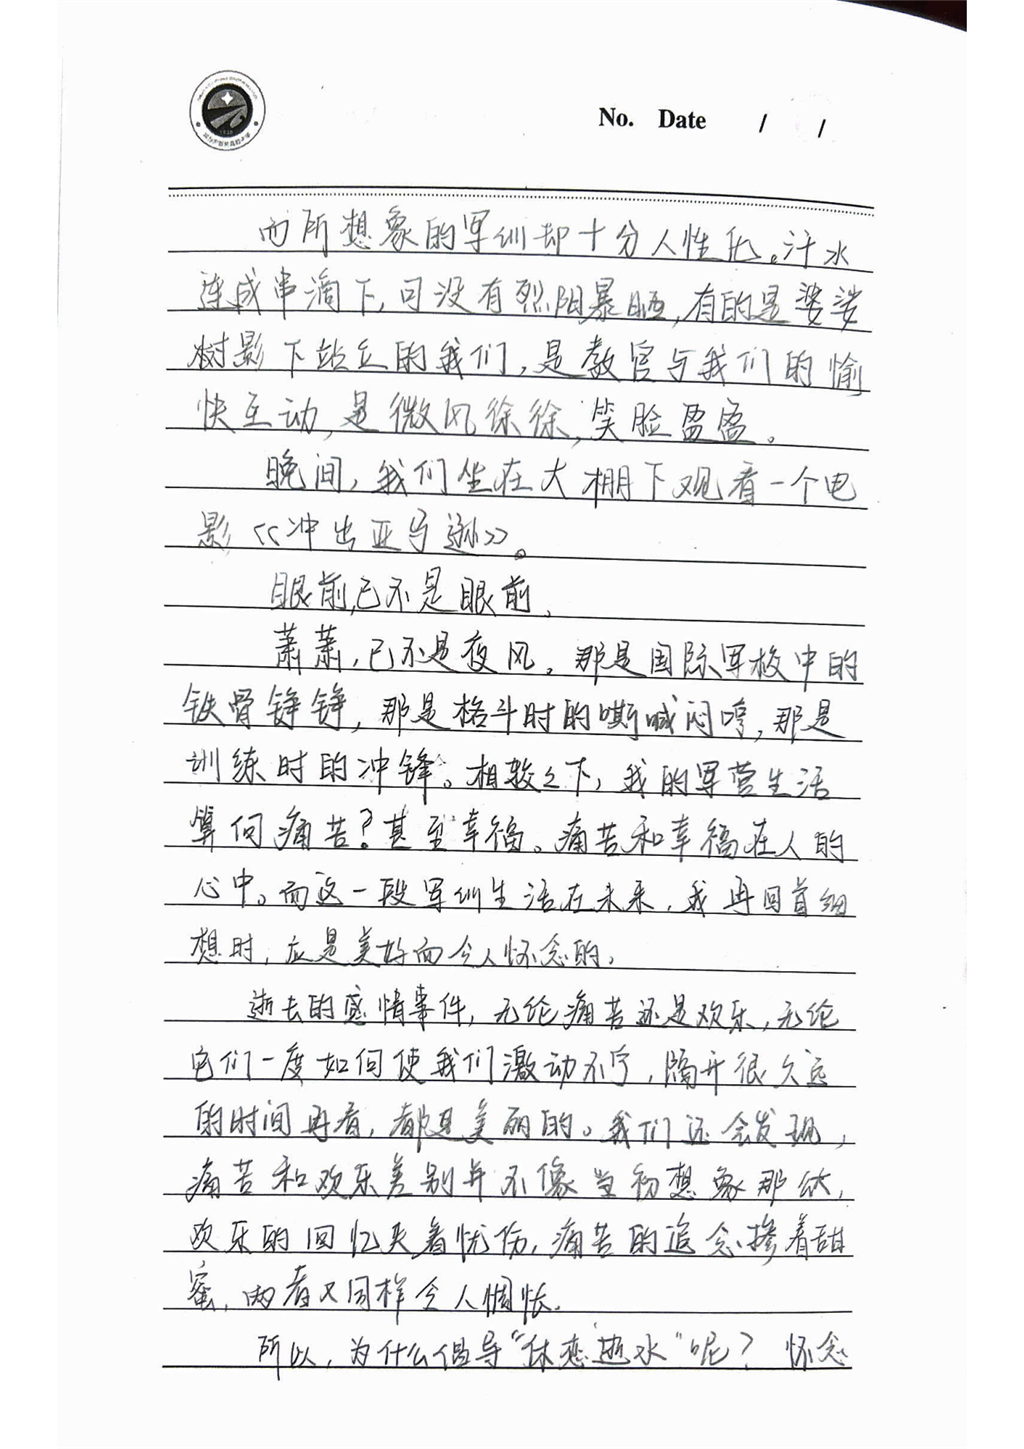 No. Date / /
而所想象的军训却十分人性化。汗水
连成串滴下,可没有烈阳暴晒,有的是婆娑
树影下站立的我们,是教官与我们的愉
快互动,是微风徐徐,笑脸盈盈。
晚间,我们坐在大棚下观看一个电
影《冲出亚马逊》。
眼前,已不是眼前。
萧萧,已不是夜风。那是国际军校中的
铁骨铮铮,那是格斗时的嘶喊闷哼,那是
训练时的冲锋。相较之下,我的军营生活
算何痛苦?甚至幸福。痛苦和幸福在人的
心中。而这一段军训生活在未来,我再回首细
想时,应是美好而令人怀念的。
逝去的感情事件,无论痛苦还是欢乐,无论
它们一度如何使我们激动不宁,隔开很久远
的时间再看,都是美丽的。我们还会发现,
痛苦和欢乐差别并不像当初想象那伙,
欢乐的回忆夹着忧伤,痛苦的追念掺着甜
蜜,两者又同样令人惆怅。
所以,为什么倡导“休恋逝水”呢?怀念